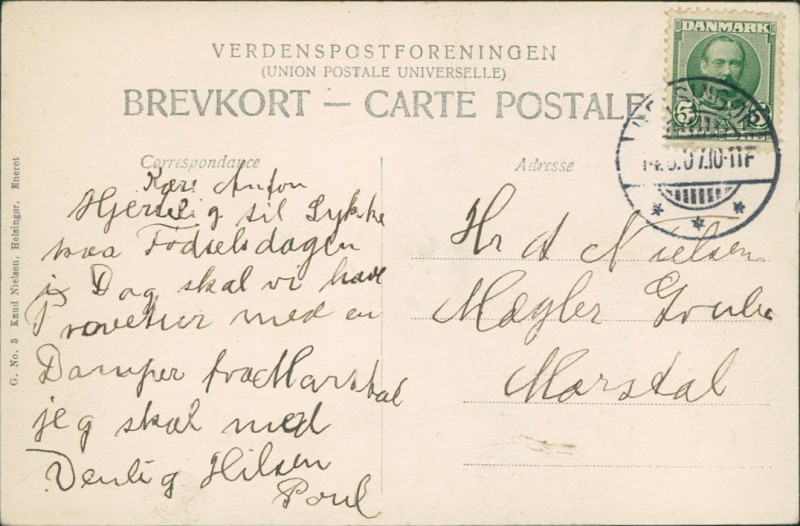 VERDENSPOSTFORENINGEN
(UNION POSTALE UNIVERSELLE)
BREVKORT — CARTE POSTALE
DANMARK
5 5
14.6.07.10-11F
Correspondance
Adresse
Kære Anton
Hjertelig til Lykke
paa Fødselsdagen
i Dag skal vi have
Prøvetur med en
Damper fra Marstal
jeg skal med
Venlig Hilsen
Poul
Hr A Nielsen
Mægler Grube
Marstal
G. No. 3 Knud Nielsen, Helsingør. Eneret